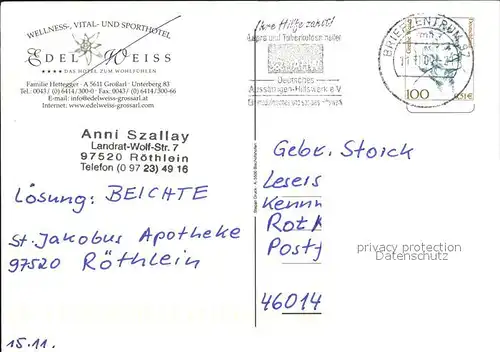 WELLNESS-, VITAL- UND SPORTHOTEL
EDEL WEISS
DAS HOTEL ZUM WOHLFÜHLEN
Familie Hettegger · A 5611 Großarl · Unterberg 83
Tel.: 0043/ (0) 6414/300-0 · Fax: 0043/ (0) 6414/300-66
E-mail: info@edelweiss-grossarl.at
Internet: www.edelweiss-grossarl.com
Anni Szallay
Landrat-Wolf-Str. 7
97520 Röthlein
Telefon (0 97 23) 49 16
Lösung: BEICHTE
St. Jakobus Apotheke
97520 Röthlein
15.11.
Ihre Hilfe zählt!
Lepra und Tuberkulose heilen
Deutsches
Aussätzigen-Hilfswerk e.V.
BRIEFZENTRUM 97
100
0,51€
Gebr. Storck
Lesers
Kennw
Rot
Postf
46014
privacy protection
Datenschutz